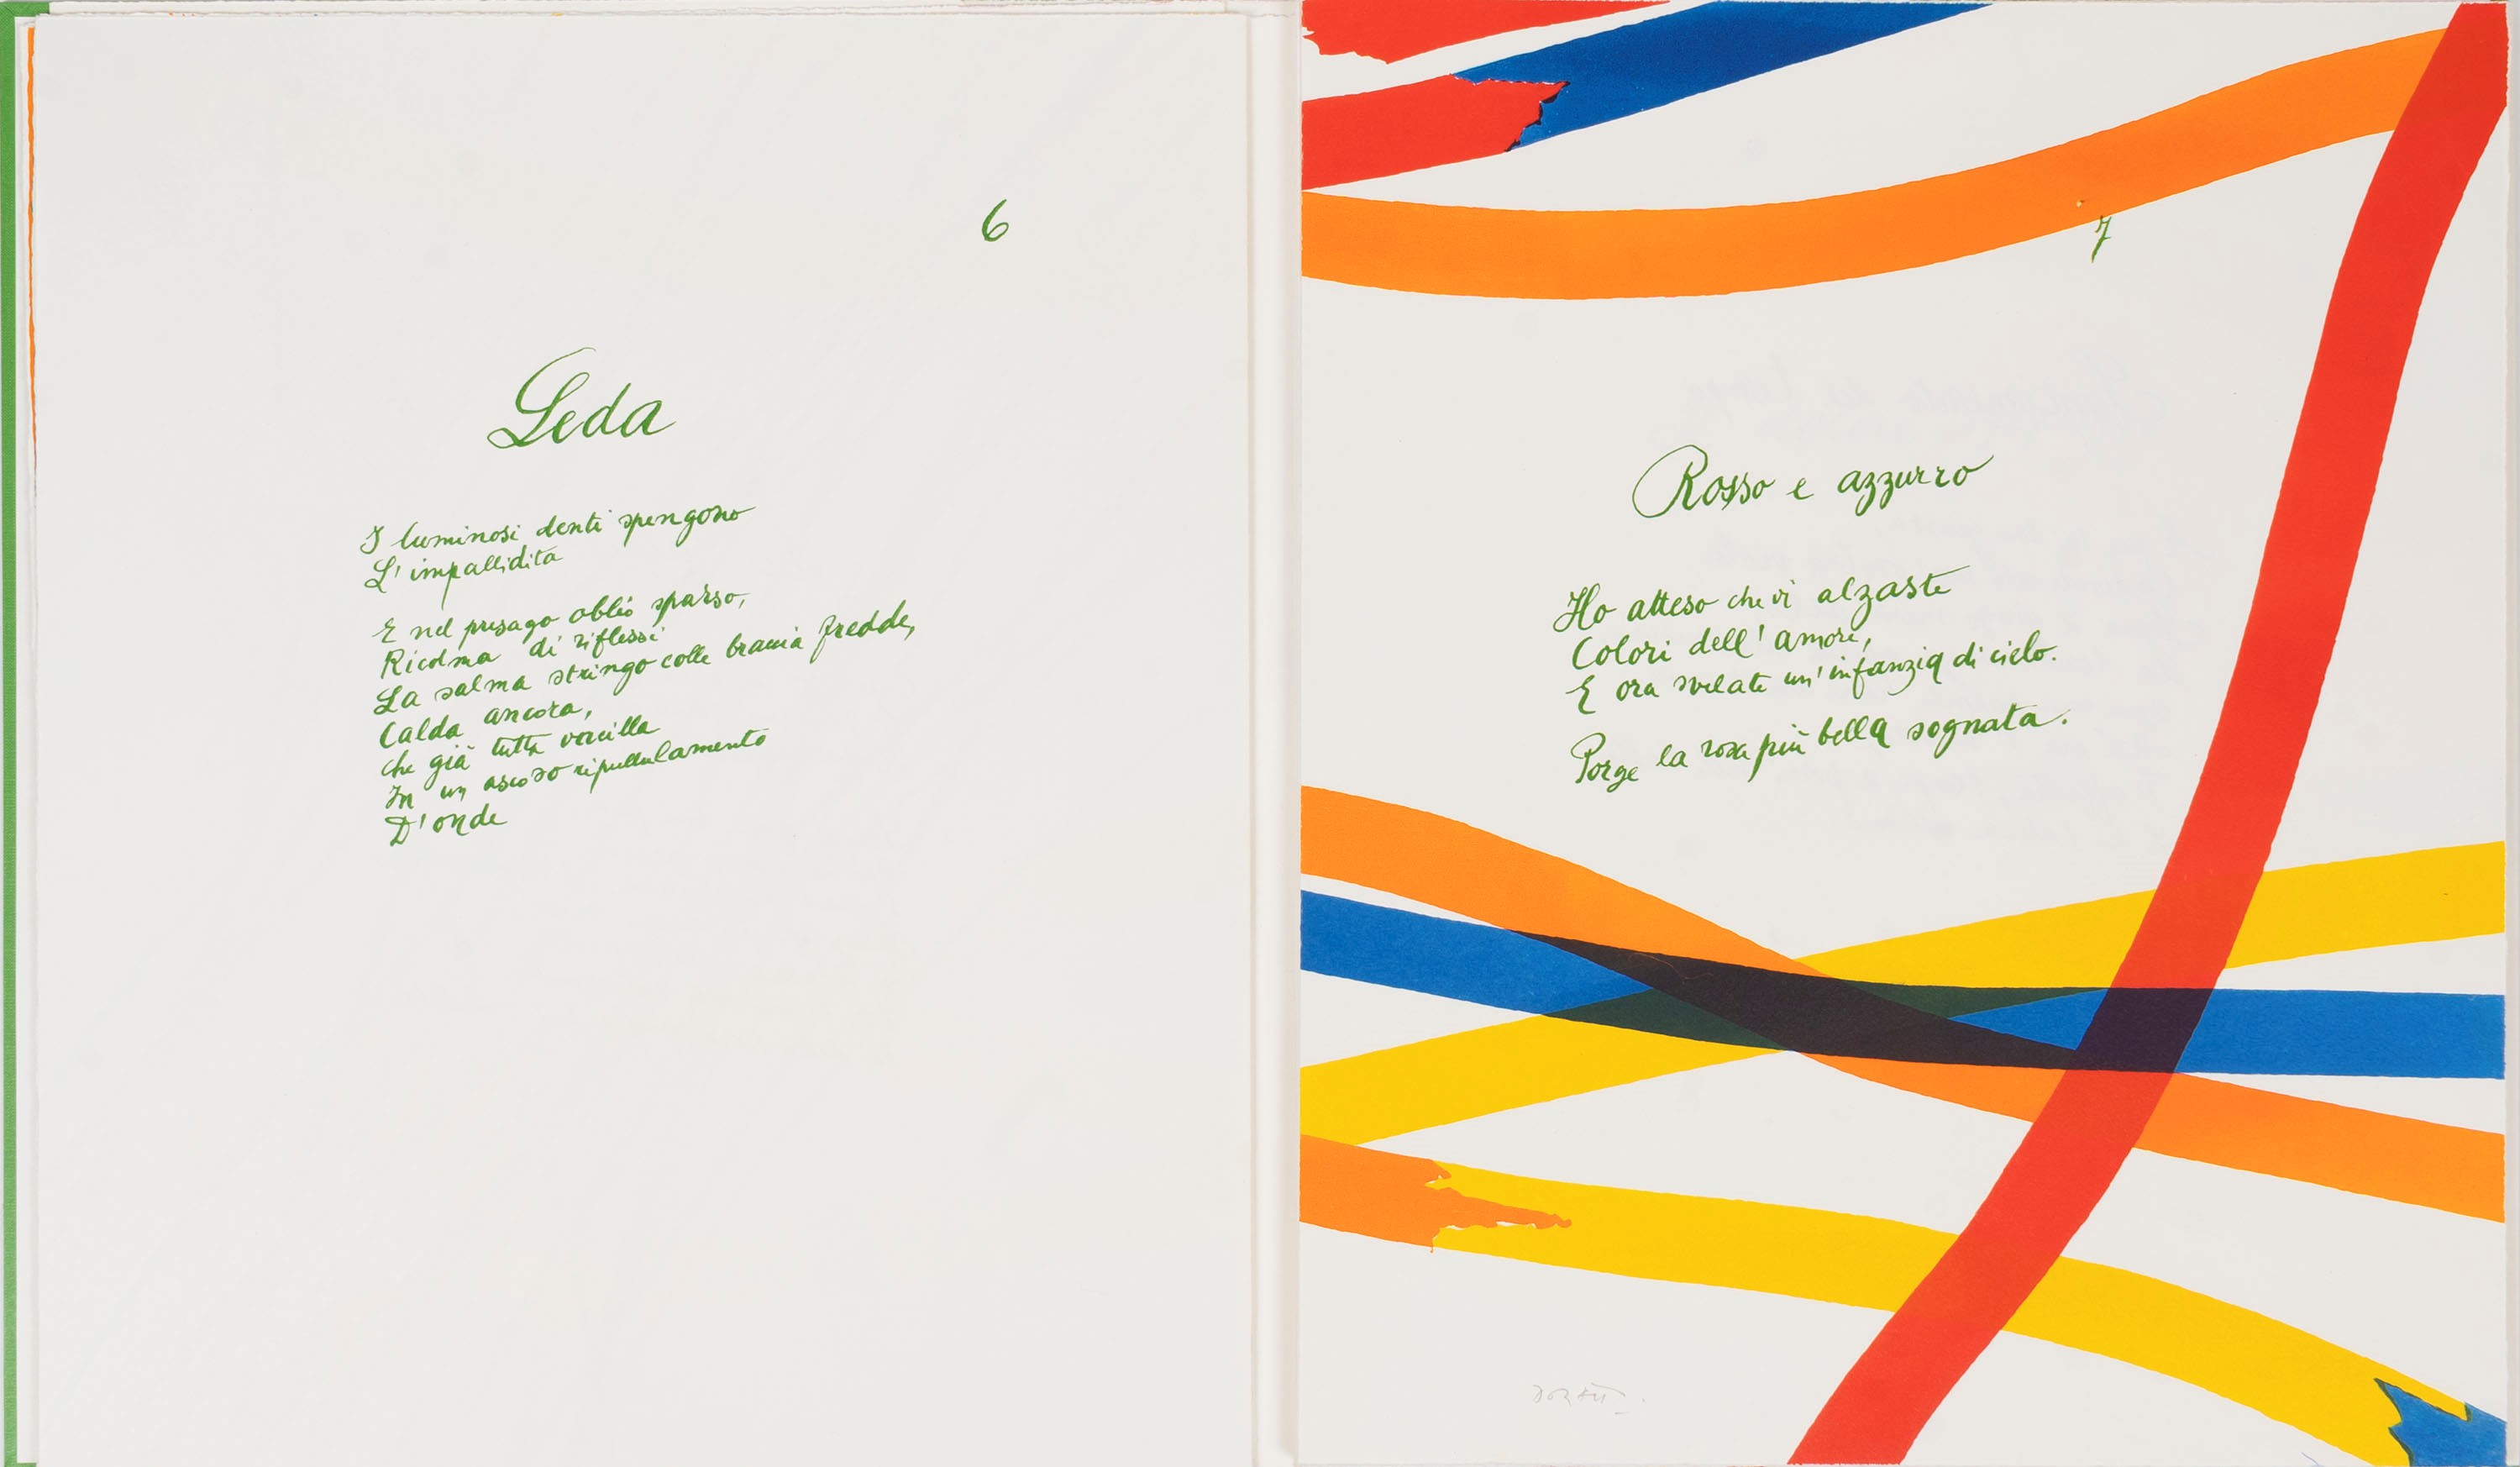 6
Leda
I luminosi denti spengono
L'impallidita
E nel presago oblio sparso,
Ricolma di riflessi
La salma stringo colle braccia fredde,
Calda ancora,
che già tutta vacilla
In un ascoso ripullulamento
D'onde
7
Rosso e azzurro
Ho atteso che vi alzaste
Colori dell'amore,
E ora svelate un'infanzia di cielo.
Porge la rosa più bella sognata.
DORAZIO